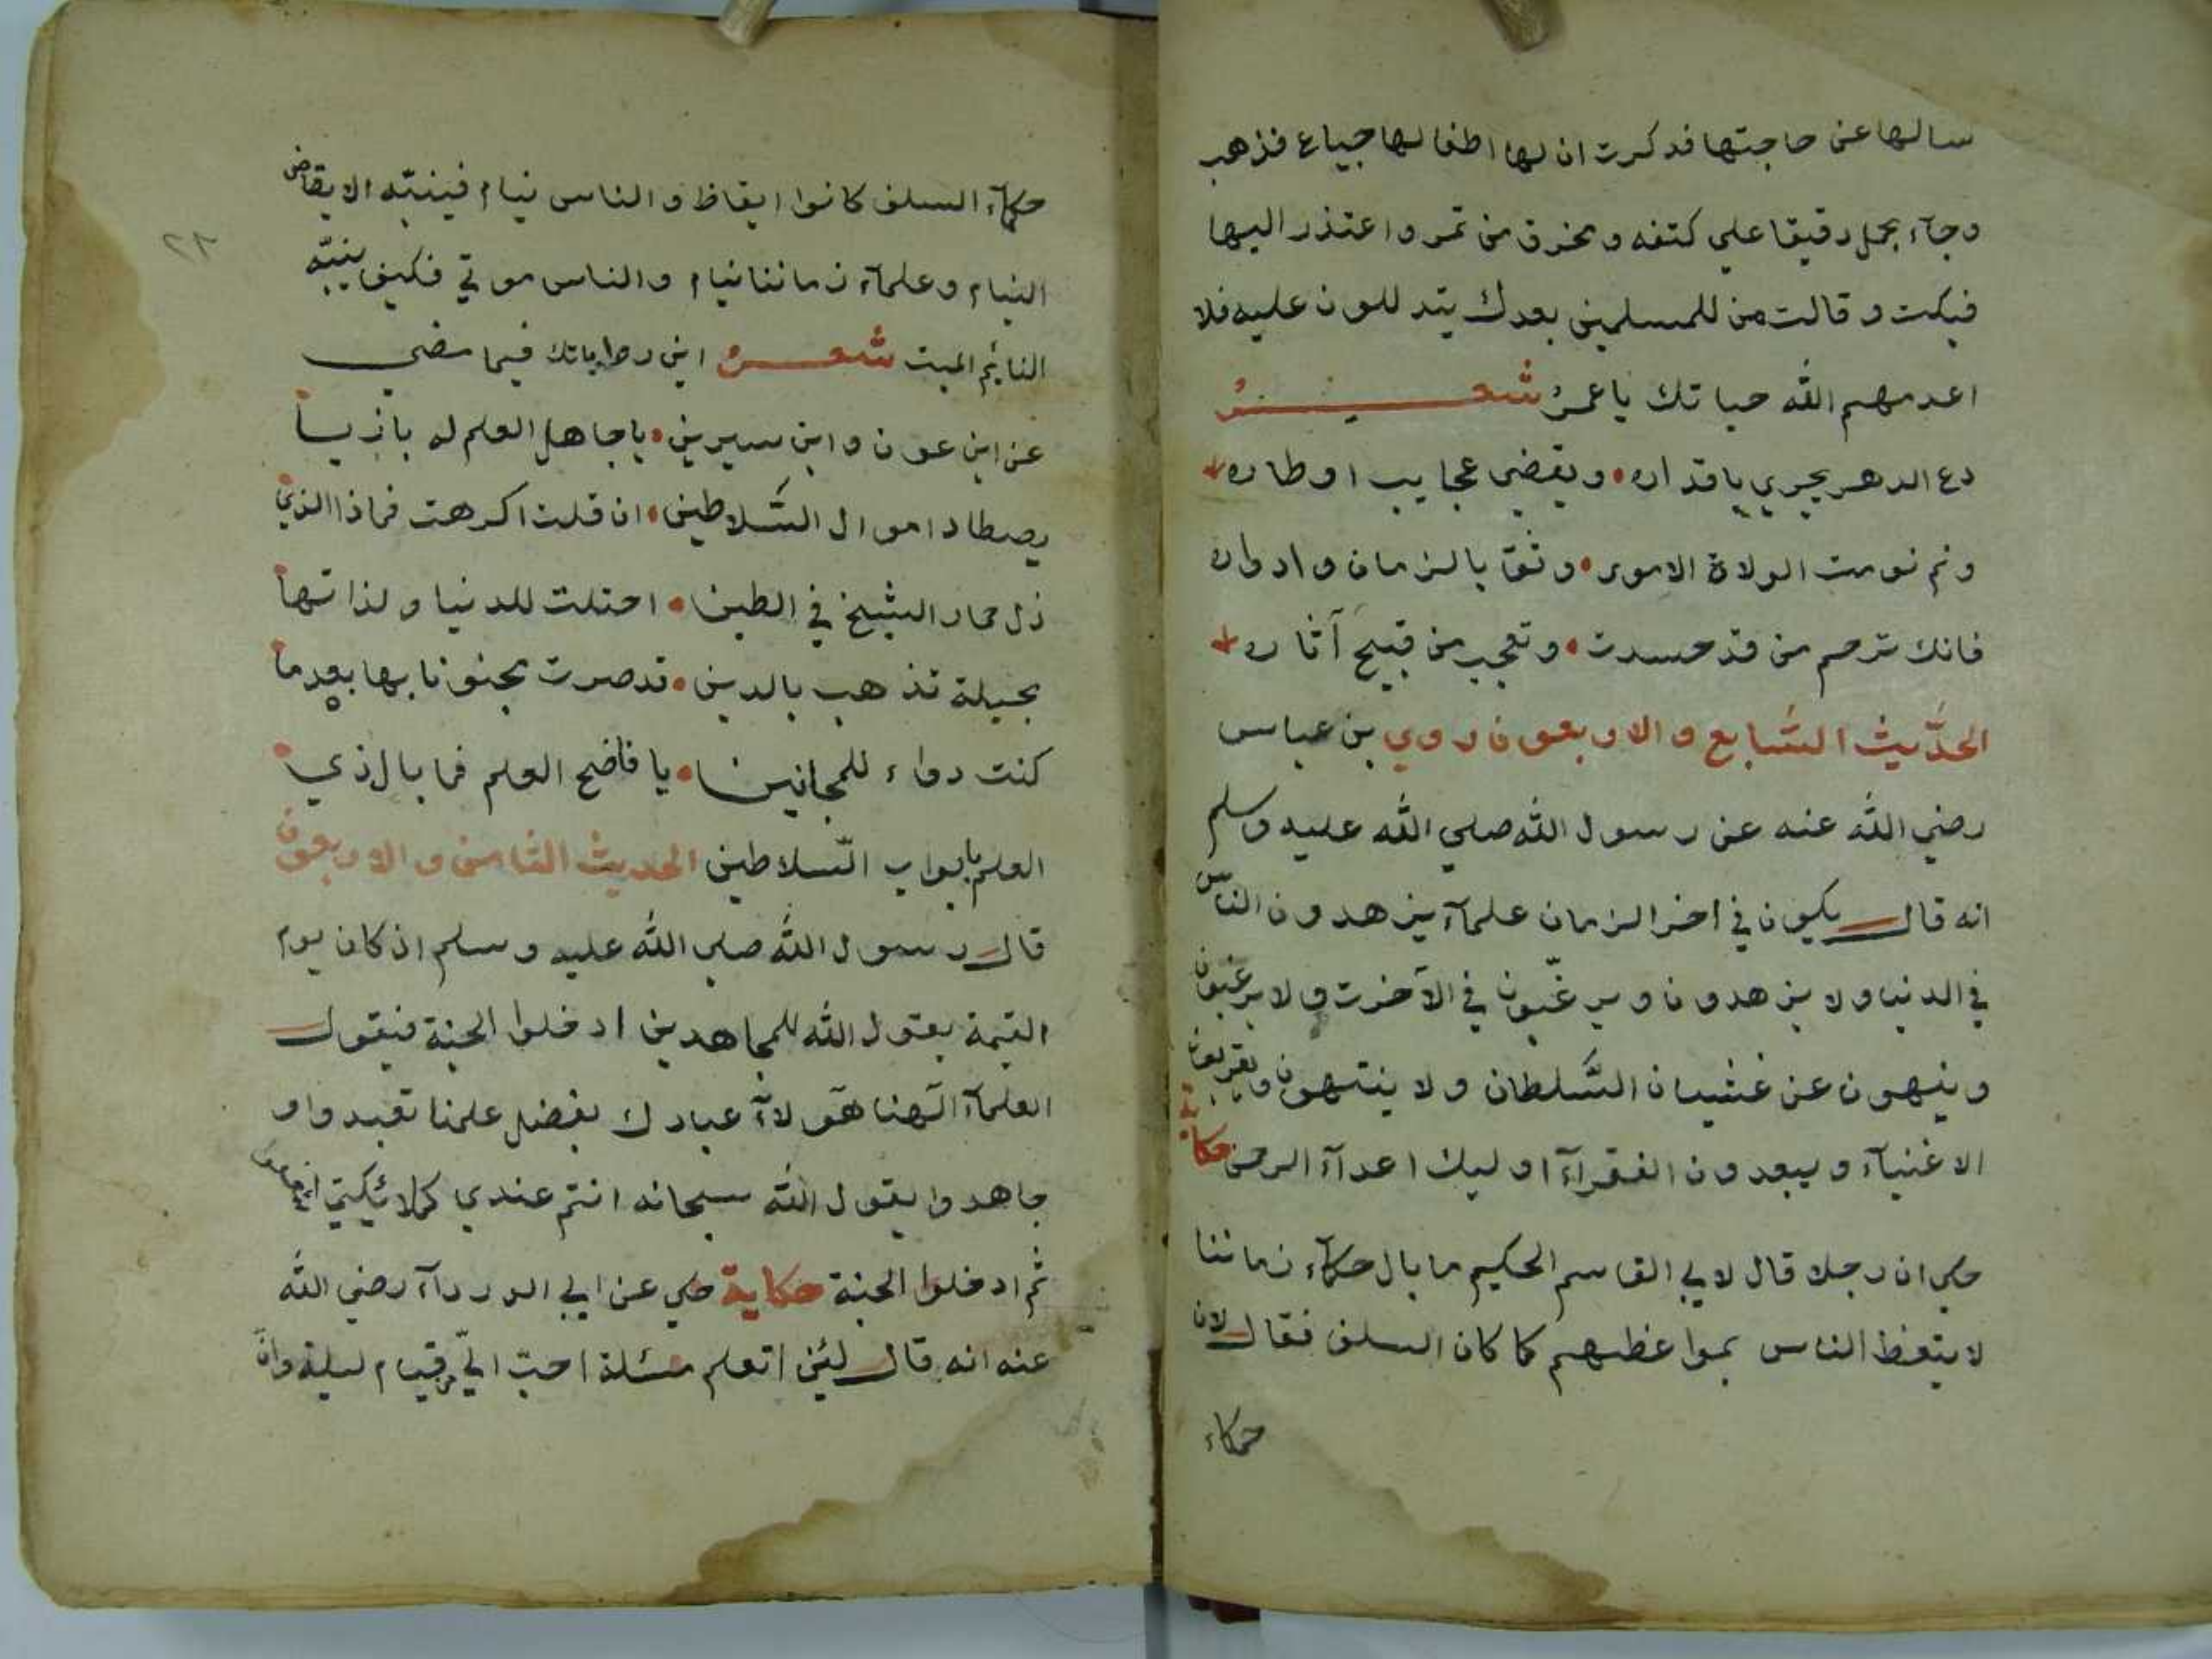 سالها عن حاجتها فذكرت ان لها اطفالها جياع فذهب
وجآء بحمل دقيقا علي كتفه و من تمر واعتذر اليها
فبكت وقالت من للمسلمين بعدك يتدللون عليه فلا
اعدمهم الله حياتك يا عمر شعر
دع الدهر يجري باقداره ويقضي عجايب اوطاره
ونم نومت الولاة الامور وثق بالزمان وادواره
فانك ترحم من قد حسدت وتعجب من قبيح آثاره
الحديث السّابع والاربعون روي بن عباس
رضي الله عنه عن رسول الله صلي الله عليه وسلم
انه قال يكون في اخر الزمان علمآء يزهدون الناس
في الدنيا ولا يزهدون ويرغّبون في الآخرت ولا يرغبون
وينهون عن غشيان السّلطان ولا ينتهون ويقربون
الاغنيآء ويبعدون الفقرآء اوليك اعدآء الرحمن حكاية
حكي ان رجلا قال لابي القاسم الحكيم ما بال حكمآء زماننا
لا يتعظ الناس بمواعظهم كما كان السلف فقال لان
حكماء
٢٣
حكمآء السلف كانوا ايقاظ والناس نيام فينبّه الايقاض
النيام وعلمآء زماننا نيام والناس موتي فكيف ينبّه
النايم الميت شعر اين رواياتك فيما مضي
عن ابن عون وابن سيرين يا جاهل العلم له بازيا
يصطاد اموال السّلاطين ان قلت اكرهت فماذا الذي
زل حمار الشيخ في الطين احتلت للدنيا ولذاتها
بحيلة تذهب بالدين قد صرت مجنونا بها بعدما
كنت دواء للمجانين يا فاضح العلم فما بال ذي
العلم بابواب السّلاطين الحديث الثامن والاربعون
قال رسول الله صلي الله عليه وسلم اذ كان يوم
القيمة يقول الله للمجاهدين ادخلوا الجنة فيقول
العلمآء الهنا هؤلآء عبادك بفضل علمنا تعبدوا و
جاهدوا يقول الله سبحانه انتم عندي كملائكتي
ثم ادخلوا الجنة حكاية حكي عن ابي الدردآء رضي الله
عنه انه قال لئن اتعلم مسئلة احبّ اليّ من قيام ليلة وان